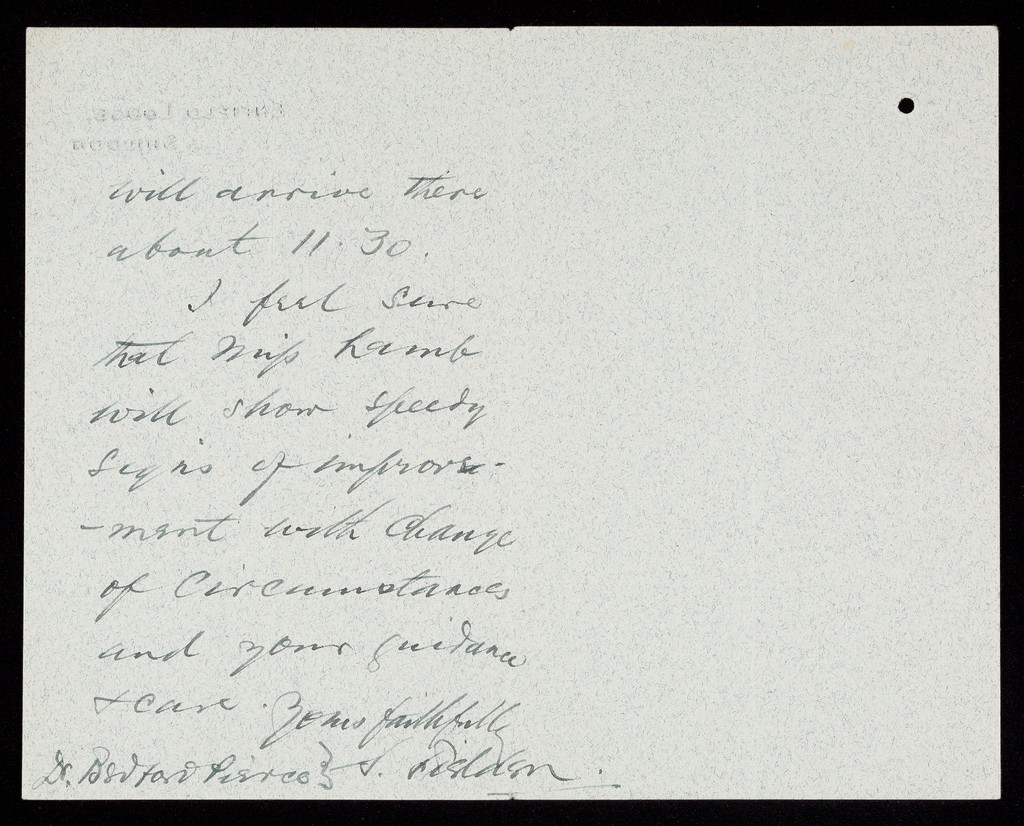 will arrive there
about 11.30.
I feel sure
that Miss Lamb
will show speedy
signs of improve-
-ment with change
of circumstances
and your guidance
& care. Yours faithfully
Dr. Bedford Pierce} S. Fielden.